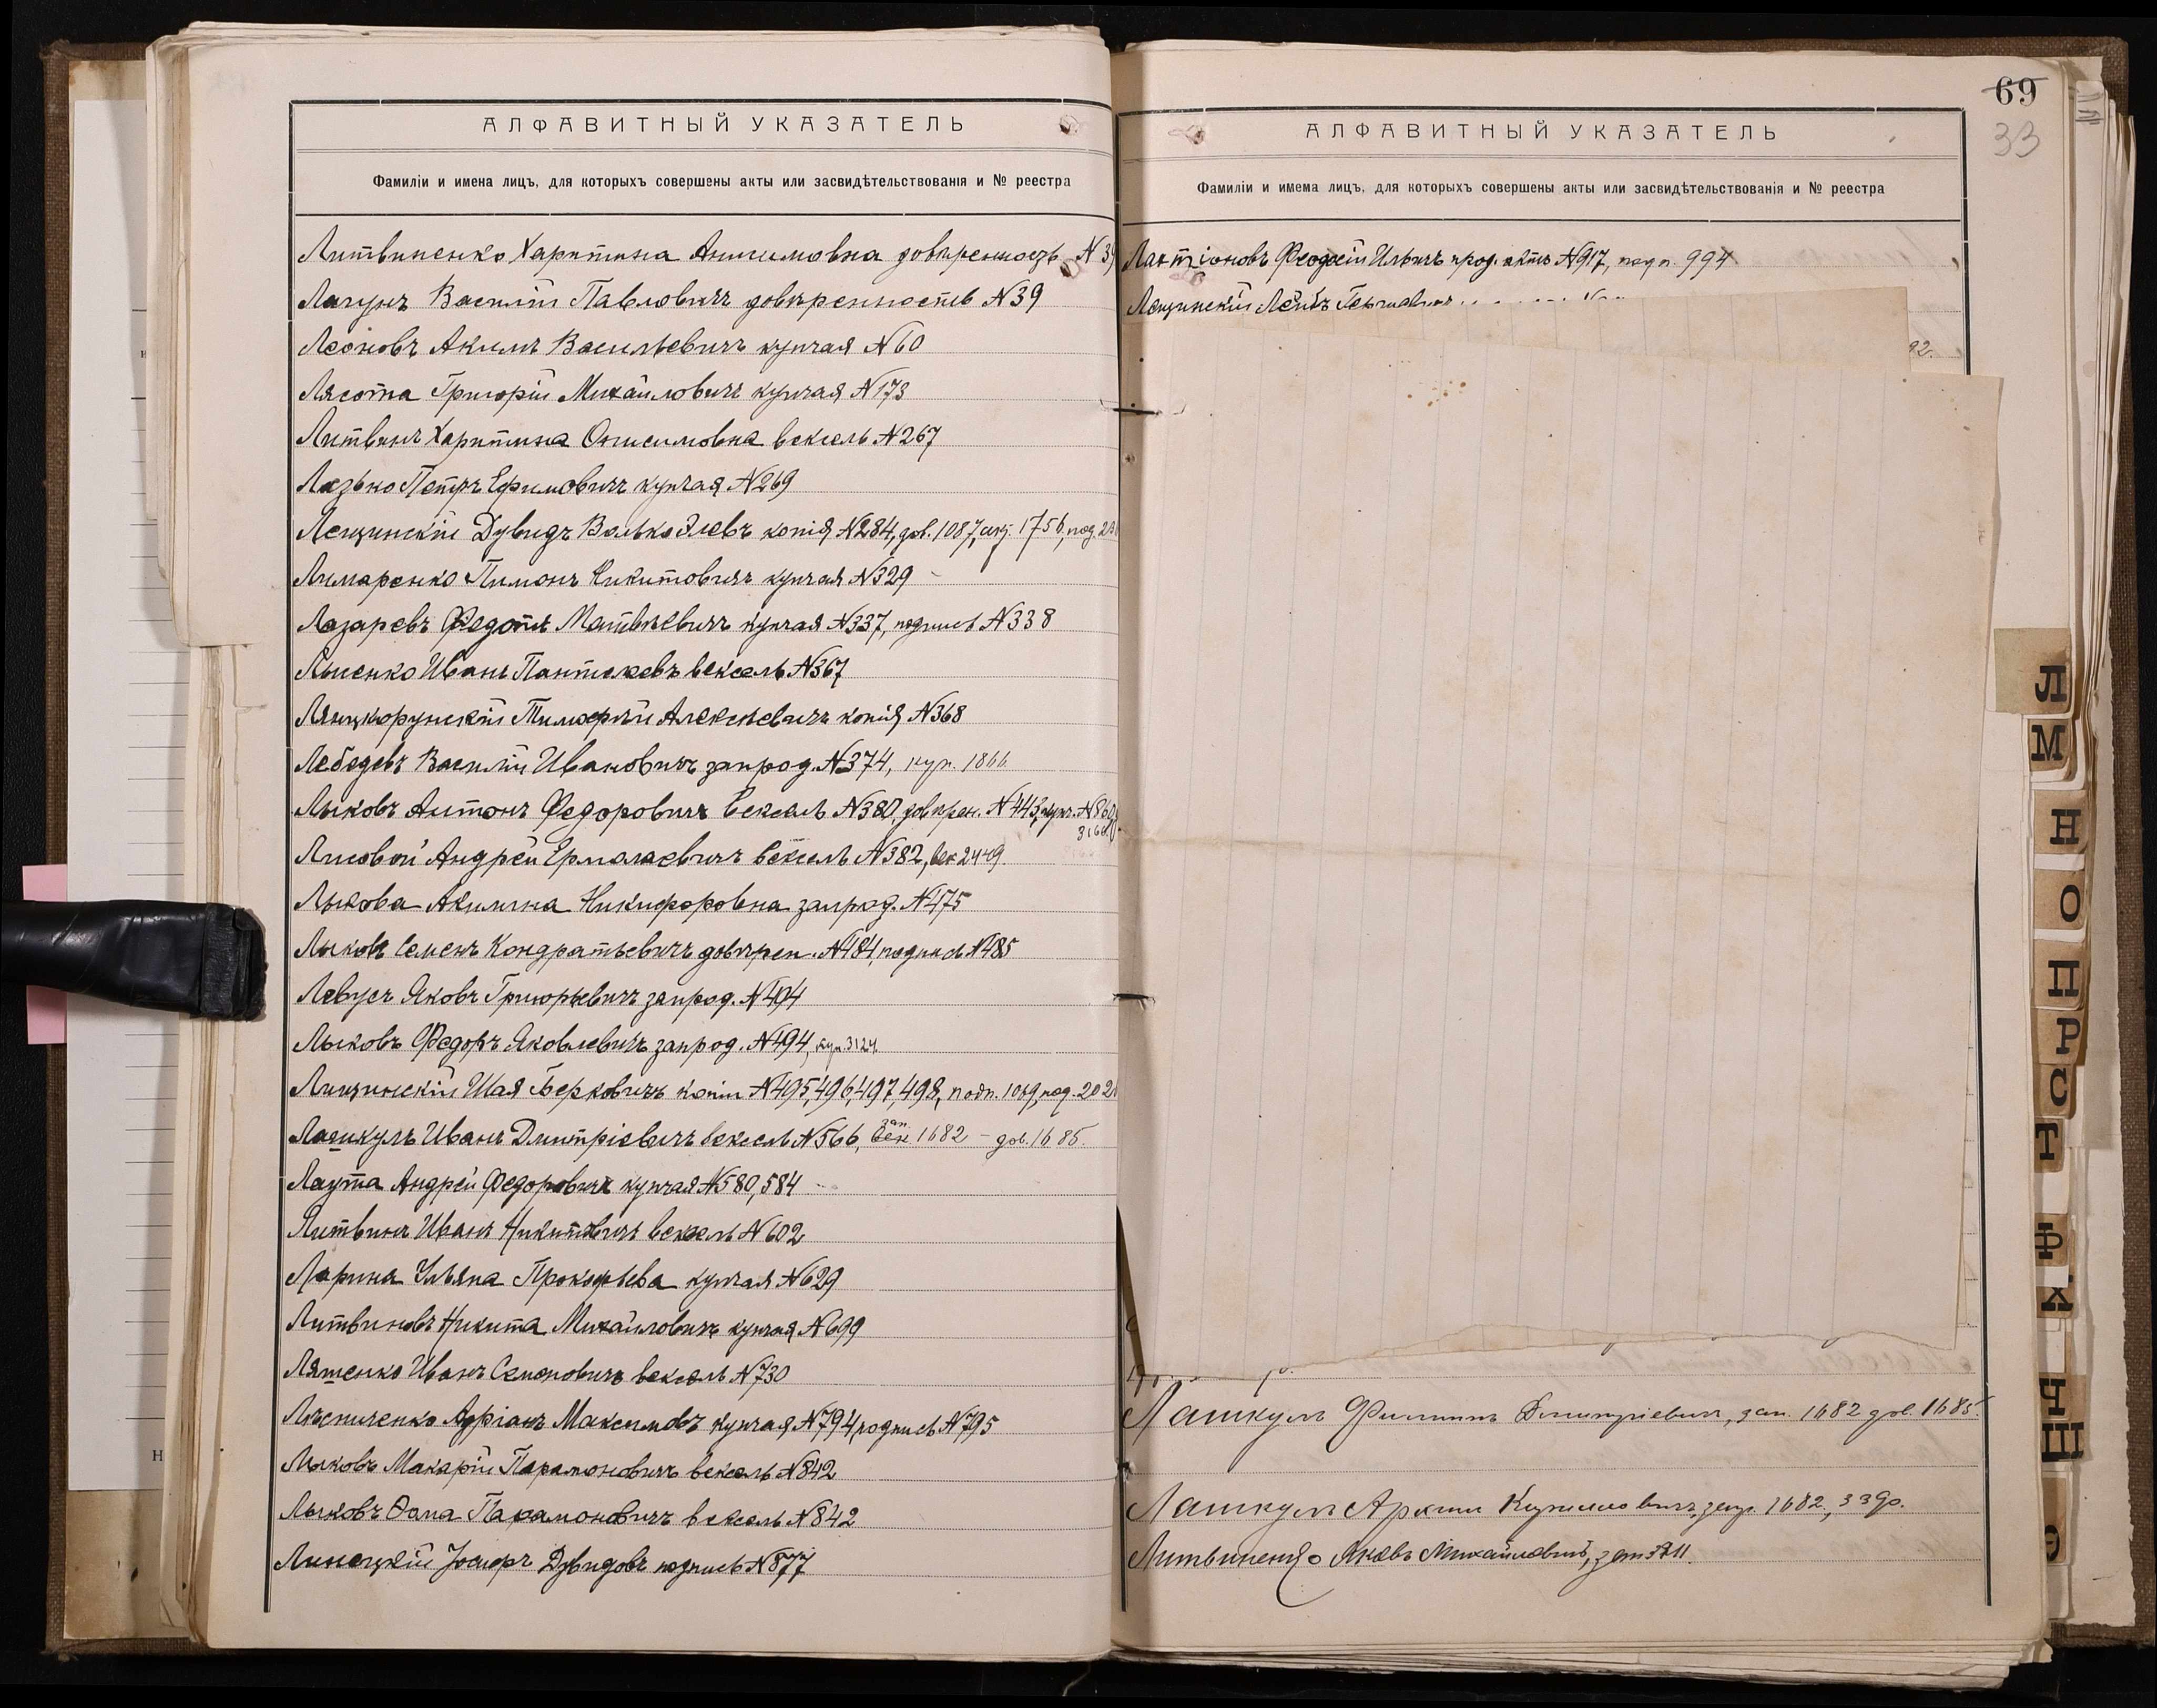 АЛФАВИТНЫЙ УКАЗАТЕЛЬ
Фамиліи и имена лицъ, для которыхъ совершены акты или засвидѣтельствованія и № реестра
Литвиненко Харитина Анисимовна довѣренность N 3
Лагунъ Василій Павловичъ довѣренность N 39
Леоновъ Акимъ Васильевичъ купчая N 60
Лясота Григорій Михайловичъ купчая N 173
Литвинъ Харитина Онисимовна вексель N 267
Лазько Петръ Ефимовичъ купчая N 269
Лещинскій Дувидъ Волько Элевъ копія N 284, дов. 1087, 1756, под.
Лимаренко Пимонъ Никитовичъ купчая N 329
Лазаревъ Федотъ Матвѣевичъ купчая N 337, подпись N 338
Лысенко Иванъ Пантелеевъ вексель N 367
Лянцкорунскій Тимофѣй Алексѣевичъ копія N 368
Лебедевъ Василій Ивановичъ запрод. N 374, куп. 1866
Лыковъ Антонъ Федоровичъ вексель N 380, довѣрен. N 443, купч. N 860
Лисовой Андрей Ермолаевичъ вексель N 382, век 2449
Лыкова Акилина Никифоровна запрод. N 475
Лыковъ Семенъ Кондратьевичъ довѣрен. N 484, подпись N 485
Левусъ Яковъ Григорьевичъ запрод. N 494
Лыковъ Федоръ Яковлевичъ запрод. N 494, куп. 3124
Лищинскій Шая Берковичъ копіи N 495, 496, 497, 498, подп. 1089, под. 202
Лашкулъ Иванъ Дмитріевичъ вексель N 566, зап. век 1682 – дов. 1685.
Лаута Андрей Федоровичъ купчая N 580, 584
Литвинъ Иванъ Никитовичъ вексель N 602
Ларина Ульяна Прокофьева купчая N 629
Литвиновъ Никита Михайловичъ купчая N 699
Ляшенко Иванъ Семеновичъ вексель N 730
Лѣсниченко Адріанъ Максимовъ купчая N 794, подпись N 795
Лыковъ Макарій Парамоновичъ вексель N 842
Лыковъ Ѳома Парамоновичъ вексель N 842
Линецкій Іосифъ Дувидовъ подпись N 877
69
33
АЛФАВИТНЫЙ УКАЗАТЕЛЬ
Фамиліи и имема лицъ, для которыхъ совершены акты или засвидѣтельствованія и № реестра
Лактіоновъ Феодосій Ильичъ прод. актъ N 917, подп. 994
Лещинскій Лейбъ Гершевичъ
92.
Лашкулъ Филиппъ Дмитріевичъ, зап. 1682 дов. 1685.
Лашкулъ Кирилловичъ, запр. 1682,
Литвиненко Яковъ Михайловичъ, зап 3711.
Л
М
Н
О
П
Р
С
Т
Ф
Х
Ч
Ш
Э